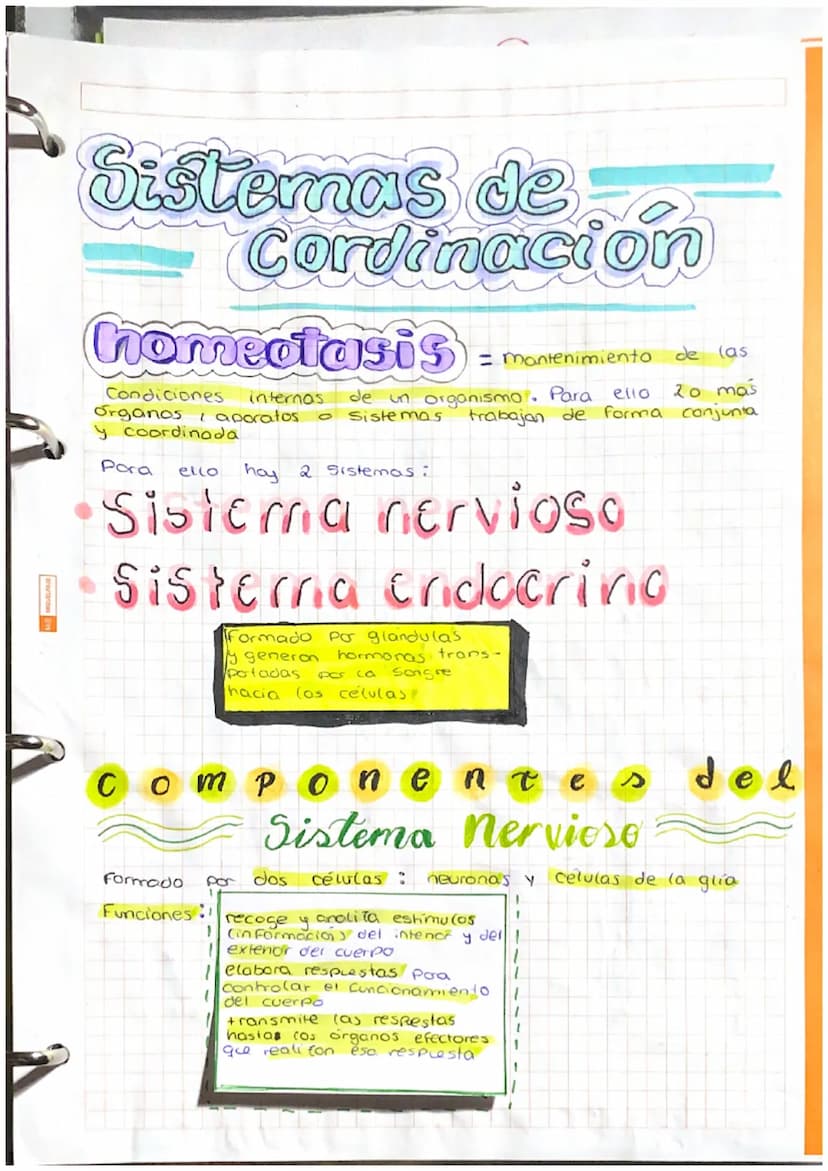 Sistemas de
cordinación
homeotasis = mantenimiento de las
condiciones internas de un organismo. Para ello 2 o más
órganos, aparatos o sistemas trabajan de forma conjunta
y coordinada
Para ello hay 2 sistemas:
• Sistema nervioso
• Sistema endocrino
Formado por glándulas
y generan hormonas trans-
potadas por la sangre
hacia las células
componentes del
Sistema Nervioso
Formado por dos células: neuronas y células de la glia
Funciones:
recoge y analiza estímulos
(información) del interior y del
exterior del cuerpo
elabora respuestas para
controlar el funcionamiento
del cuerpo
transmite las respestas
hasta los órganos efectores
que realizan esa respuesta